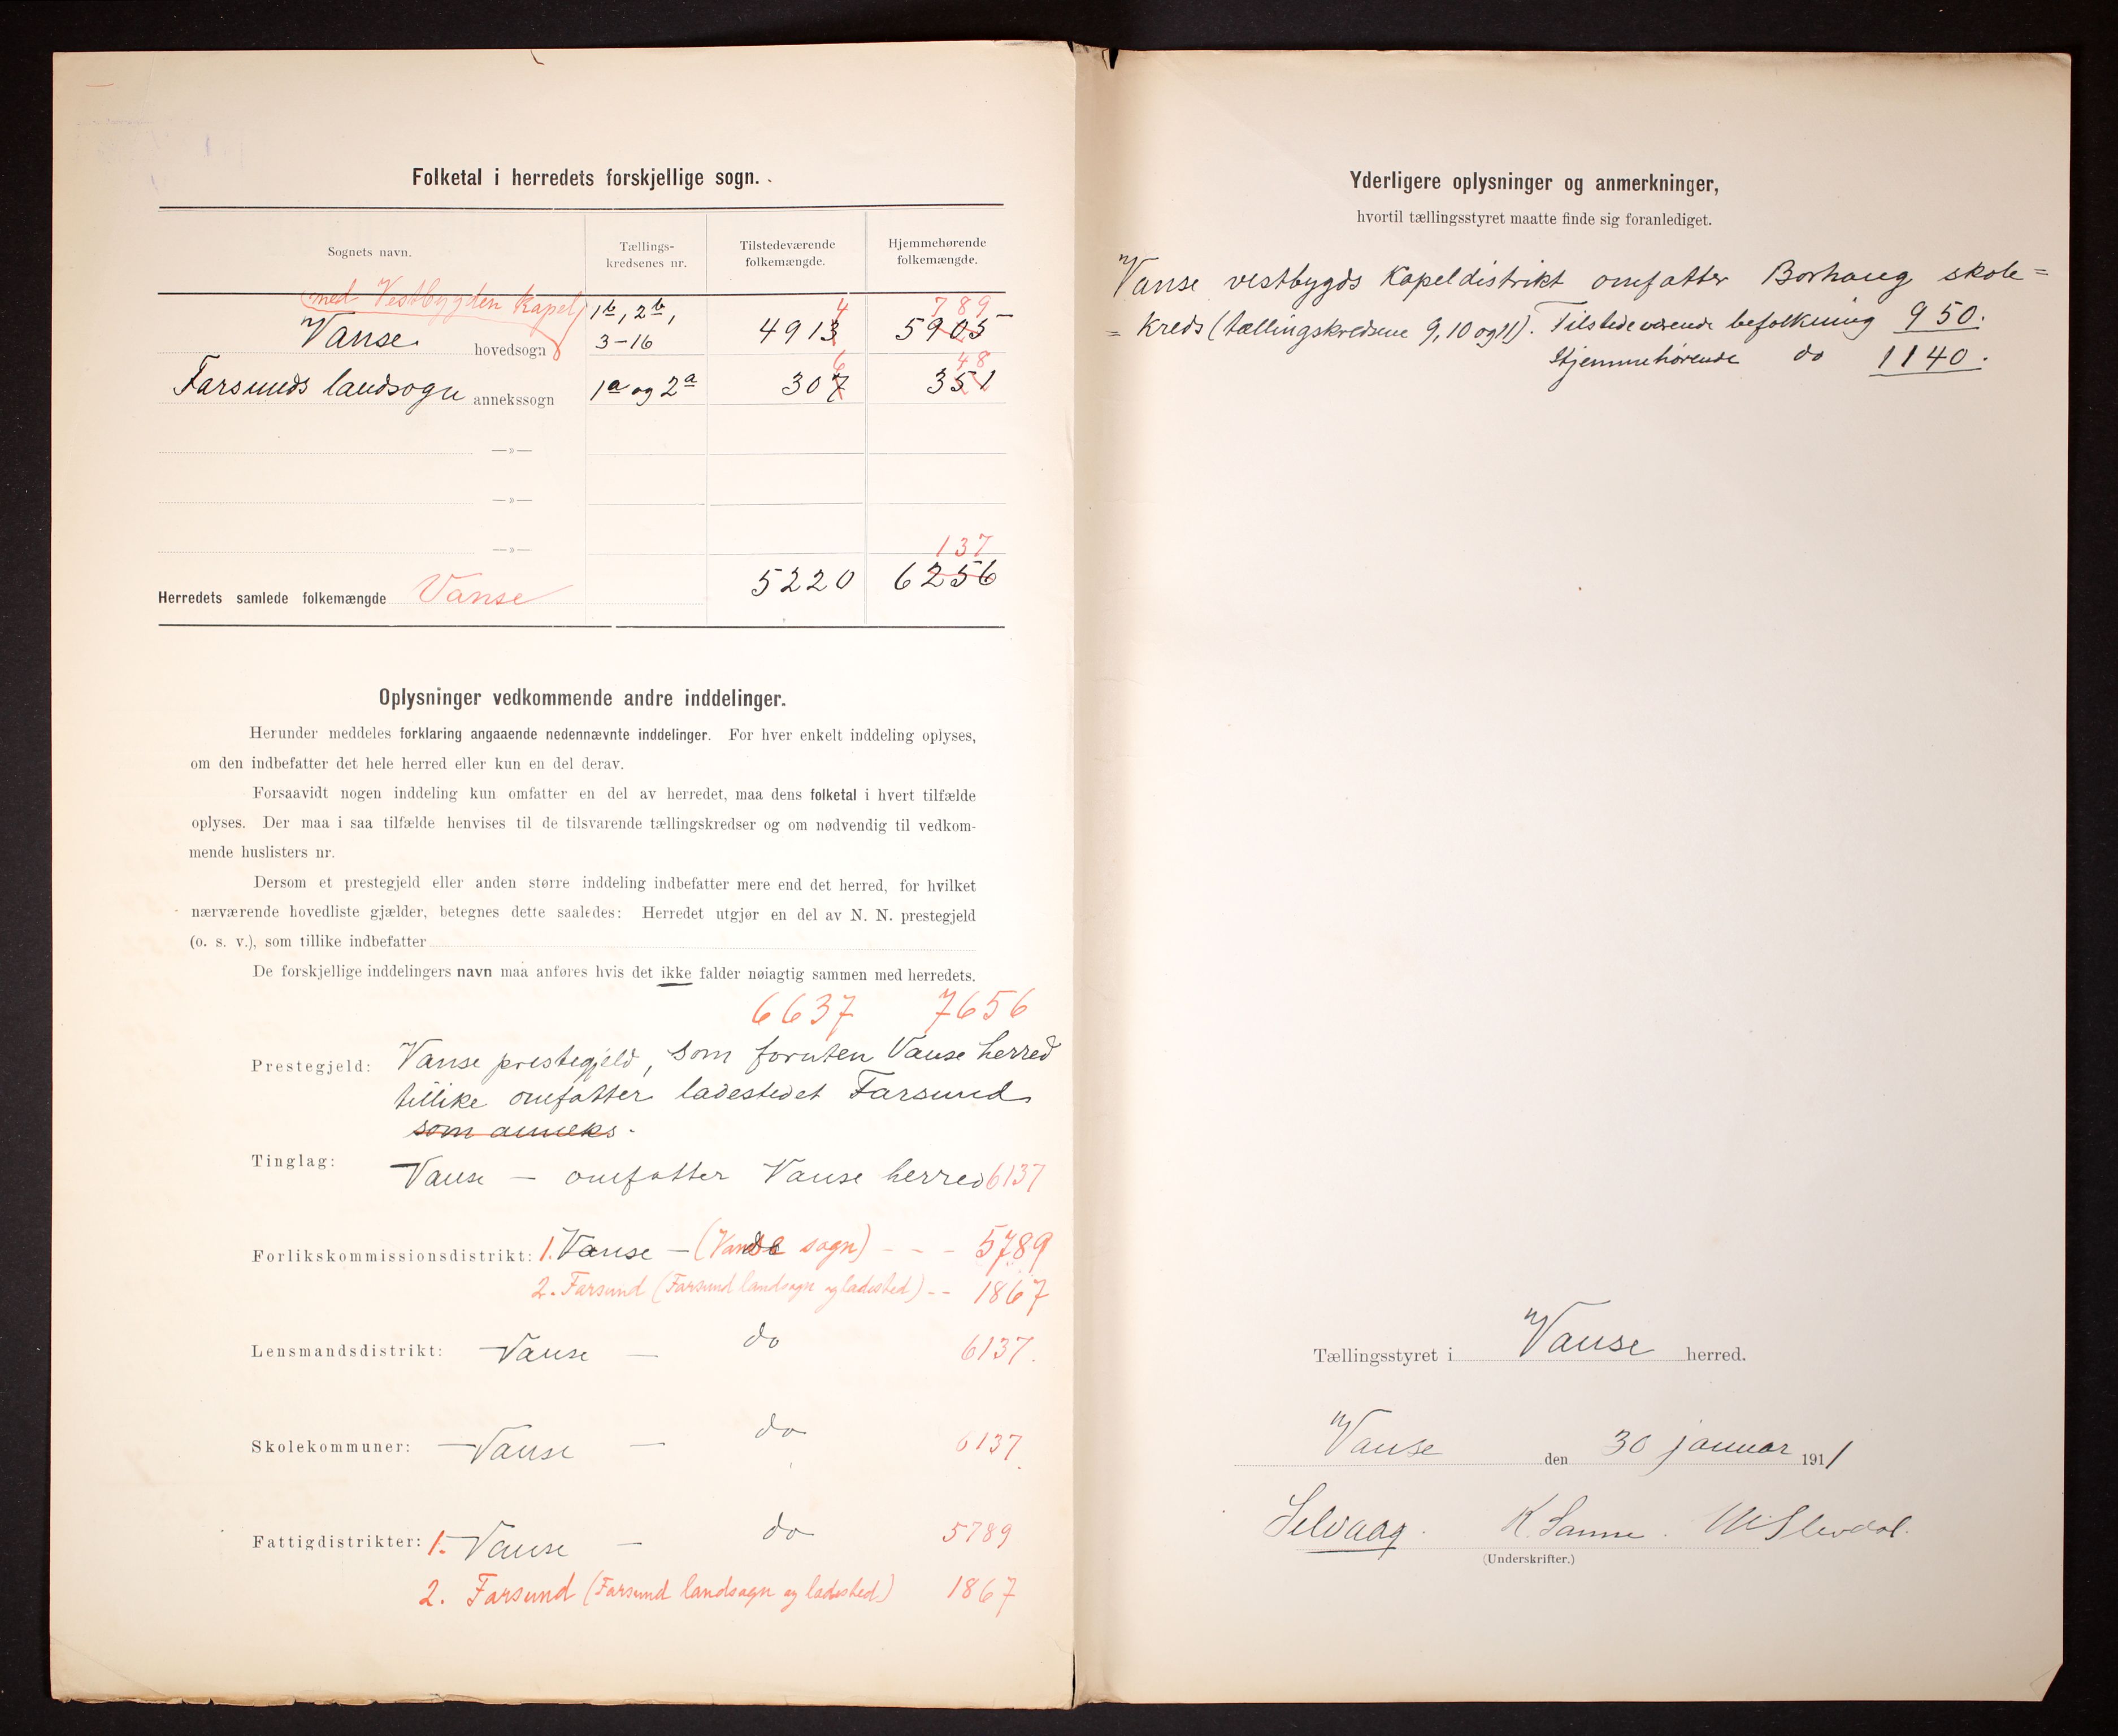 Folketal i herredets forskjellige sogn.
Sognets navn.
Tællings-
kredsenes nr.
Tilstedeværende
folkemængde.
Hjemmehørende
folkemængde.
(med Vestbygden kapel)
Vanse hovedsogn
1b, 2b,
3-16
4
4913
789
5905
Farsunds landsogn annekssogn
1a og 2a
6
307
48
351
—»—
—»—
—»—
137
Herredets samlede folkemængde Vanse 5220 6256
Oplysninger vedkommende andre inddelinger.
Herunder meddeles forklaring angaaende nedennævnte inddelinger. For hver enkelt inddeling oplyses,
om den indbefatter det hele herred eller kun en del derav.
Forsaavidt nogen inddeling kun omfatter en del av herredet, maa dens folketal i hvert tilfælde
oplyses. Der maa i saa tilfælde henvises til de tilsvarende tællingskredser og om nødvendig til vedkom-
mende huslisters nr.
Dersom et prestegjeld eller anden større inddeling indbefatter mere end det herred, for hvilket
nærværende hovedliste gjælder, betegnes dette saaledes: Herredet utgjør en del av N. N. prestegjeld
(o. s. v.), som tillike indbefatter
De forskjellige inddelingers navn maa anføres hvis det ikke falder nøiagtig sammen med herredets.
6637 7656
Prestegjeld: Vanse prestegjeld, som foruten Vanse herred
tillike omfatter ladestedet Farsund
som anneks.
Tinglag: Vanse — omfatter Vanse herred 6137
Forlikskommissionsdistrikt: 1. Vanse — (Vanse sogn) - - - 5789
2. Farsund (Farsund landsogn og ladested) - - 1867
Lensmandsdistrikt: Vanse — do 6137.
Skolekommuner: Vanse — do 6137.
Fattigdistrikter: 1. Vanse — do 5789
2. Farsund (Farsund landsogn og ladested) 1867
Yderligere oplysninger og anmerkninger,
hvortil tællingsstyret maatte finde sig foranlediget.
Vanse vestbygds Kapeldistrikt omfatter Borhaug skole=
= Kreds (tællingskredsene 9, 10 og 11). Tilstedeværende befolkning 950.
Hjemmehørende do 1140.
Tællingsstyret i Vanse herred.
Vanse den 30 januar 1911
Selvaag. K. Sanne.
(Underskrifter.)